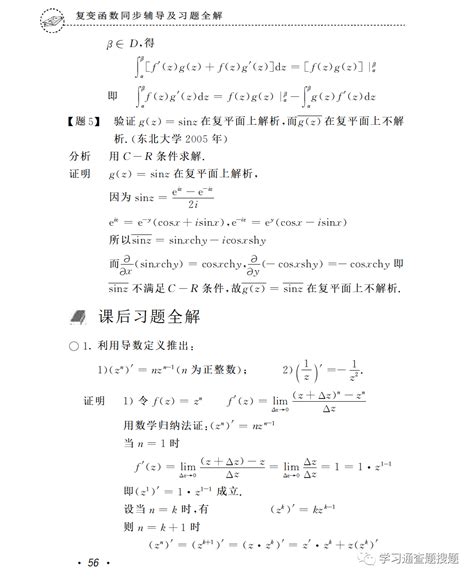 复变函数同步辅导及习题全解
β∈ D,得
∫_α^β [f′(z)g(z) + f(z)g′(z)]dz = [f(z)g(z)] |_α^β
即 ∫_α^β f(z)g′(z)dz = f(z)g(z) |_α^β − ∫_α^β g(z)f′(z)dz
【题 5】 验证 g(z) = sinz 在复平面上解析,而\overline{g(z)} 在复平面上不解
析.(东北大学 2005 年)
分析 用 C−R 条件求解.
证明 g(z) = sinz 在复平面上解析,
因为 sinz = (e^{iz} − e^{−iz})/2i
e^{iz} = e^{−y}(cosx + isinx),e^{−iz} = e^y(cosx − isinx)
所以\overline{sinz} = sinxchy − icosxshy
而 ∂/∂x (sinxchy) = cosxchy, ∂/∂y (− cosxshy) =− cosxchy 即
\overline{sinz} 不满足 C−R 条件,故\overline{g(z)} = \overline{sinz} 在复平面上不解析.
课后习题全解
○ 1. 利用导数定义推出:
1)(z^n)′ = nz^{n−1}(n 为正整数); 2)(1/z)′ =− 1/z².
证明 1) 令 f(z) = z^n f′(z) = lim_{Δz→0} ((z + Δz)^n − z^n)/Δz
用数学归纳法证:(z^n)′ = nz^{n−1}
当 n = 1 时
f′(z) = lim_{Δz→0} ((z + Δz) − z)/Δz = lim_{Δz→0} Δz/Δz = 1 = 1 · z^{1−1}
即(z^1)′ = 1 · z^{1−1} 成立.
设当 n = k 时,有 (z^k)′ = kz^{k−1}
则 n = k + 1 时
(z^n)′ = (z^{k+1})′ = (z · z^k)′ = z′ · z^k + z(z^k)′
· 56 ·
学习通查题搜题